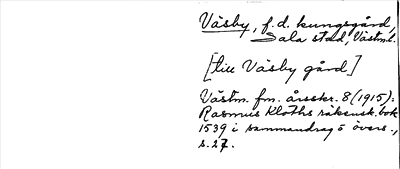 Väsby, f.d. kungsgård,
Sala stad, Västml.
[till Väsby gård]
Västm. fm. årsskr. 8 (1915):
Rasmus Kloths räkensk.bok
1539 i sammandrag o övers.,
s.27.